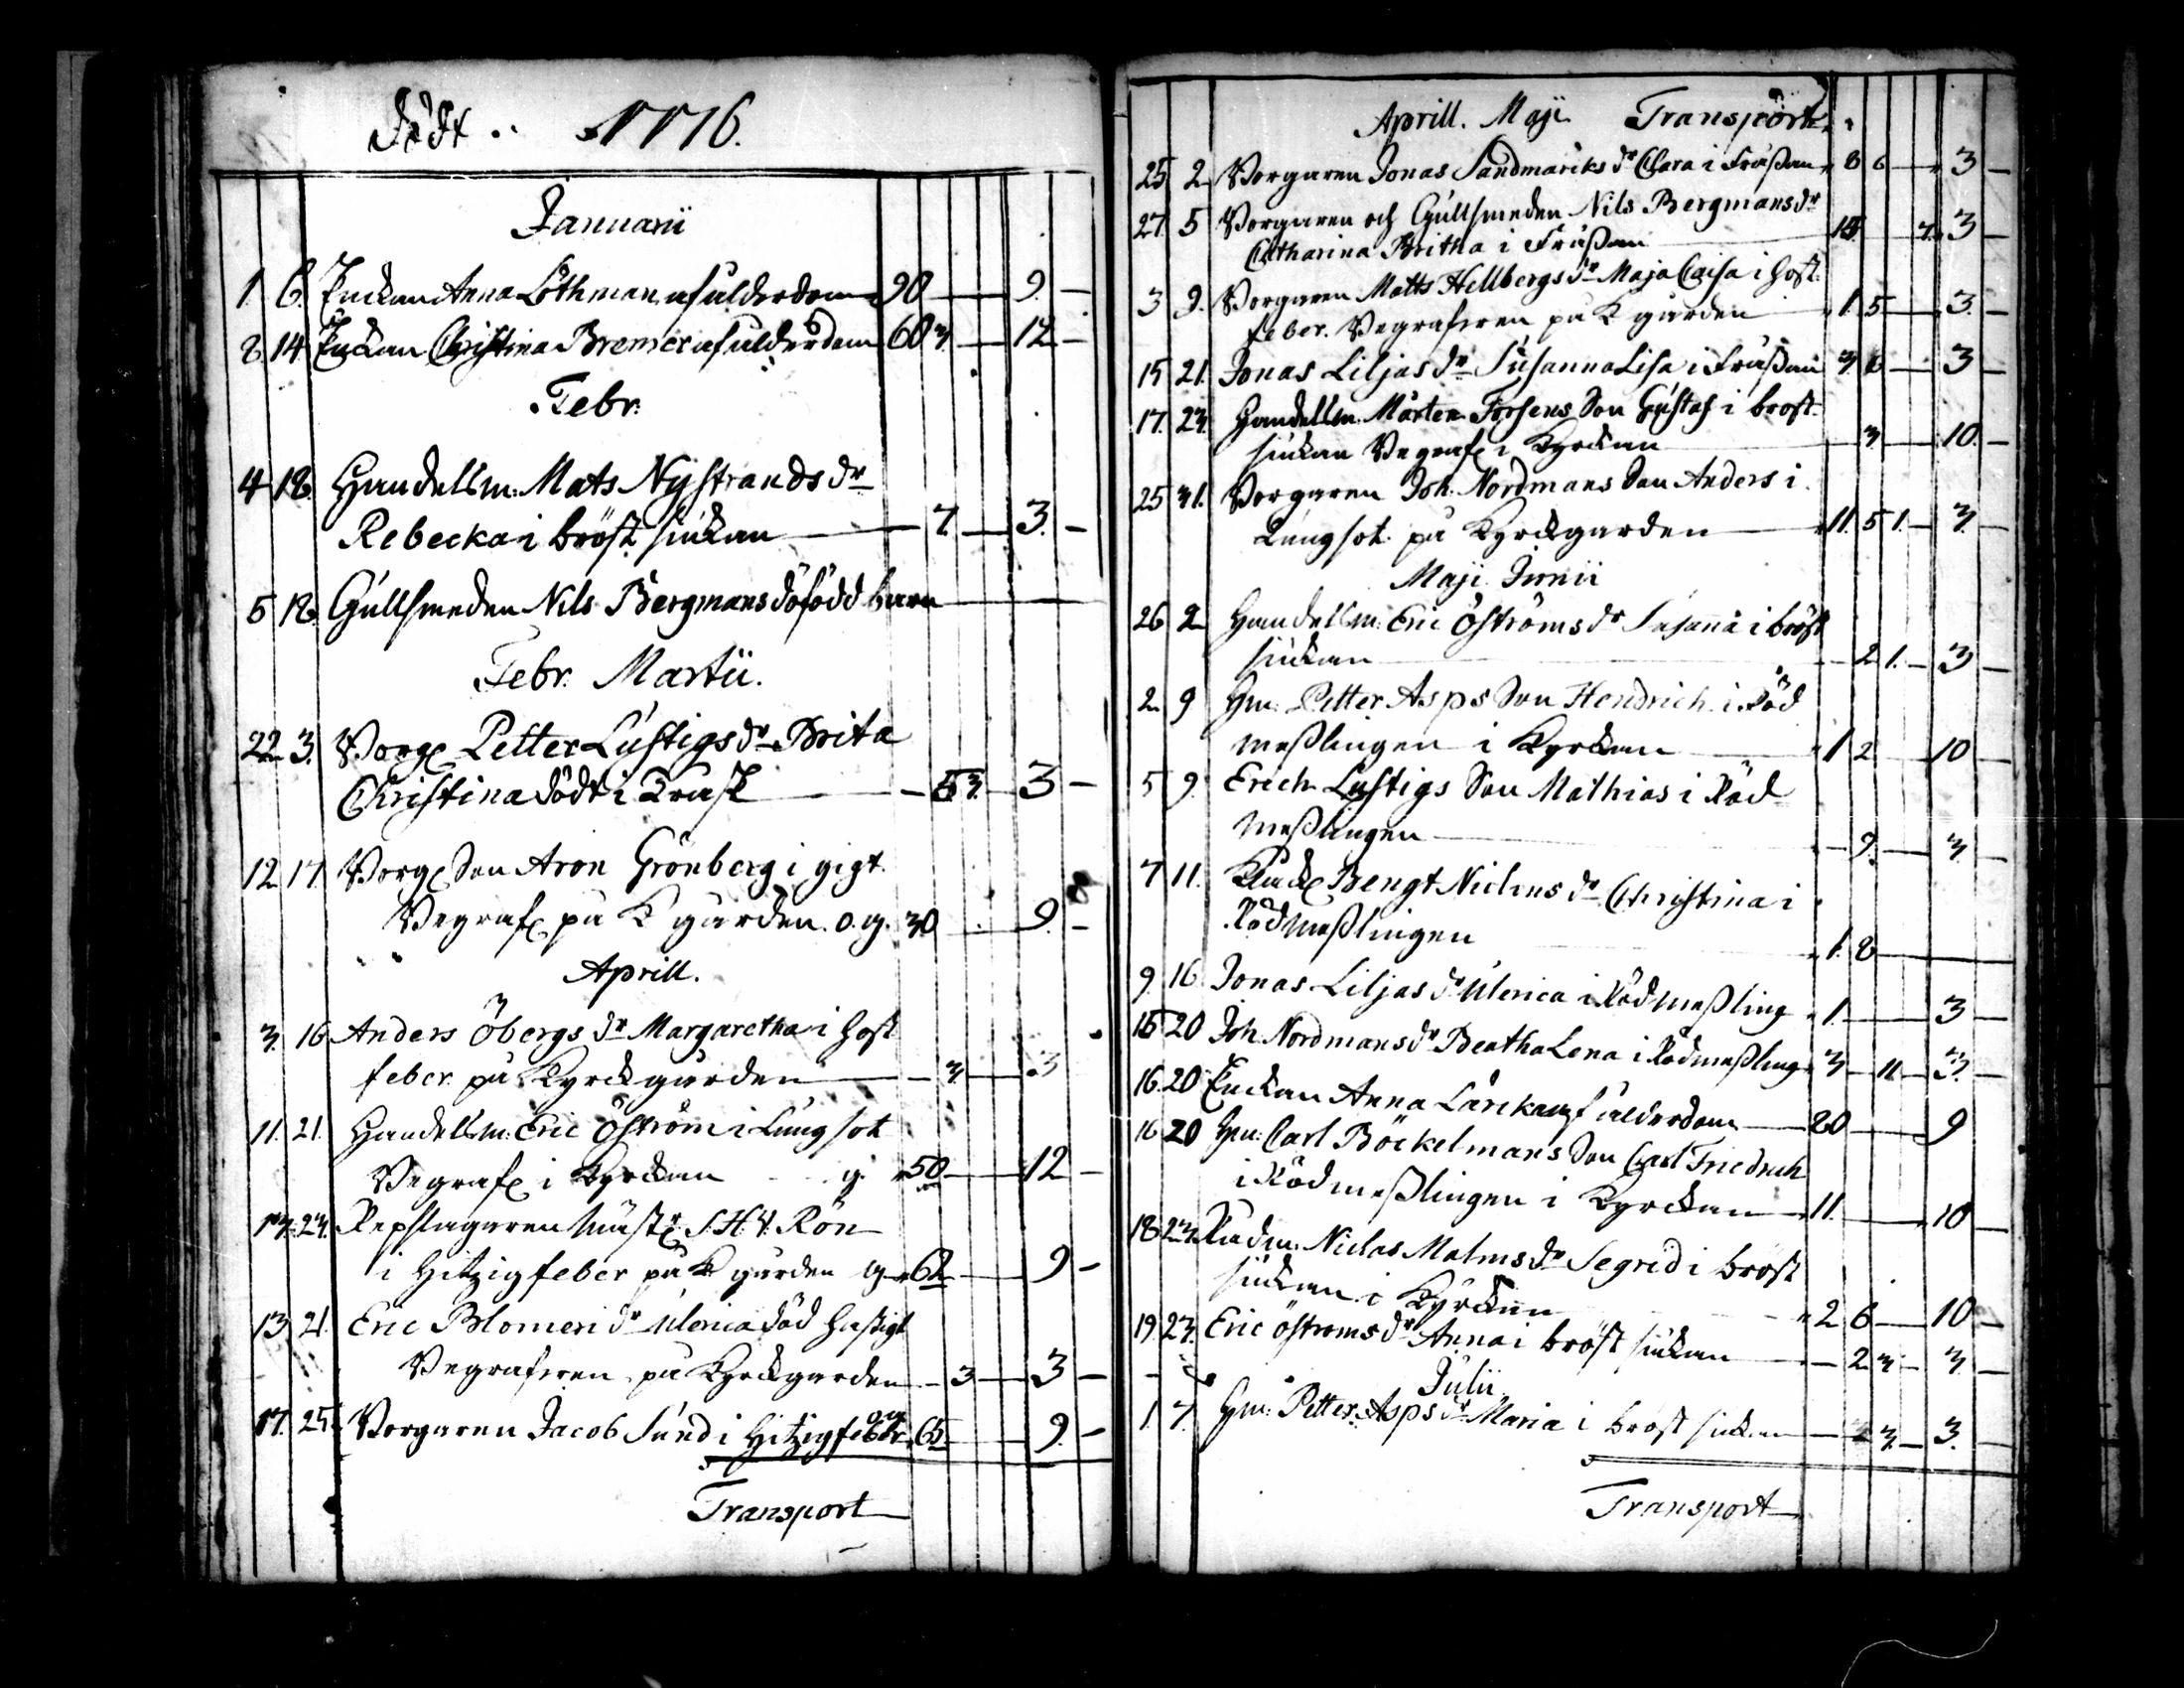 Födt .. 1776.
Januarii
1. 6. Enckan Anna Löthman af ålderdom 90 — 9. —
8. 14. Enckan Christina Bremer af ålderdom 60 3. — 12 —
Febr.
4 18. Handelsm: Mats Nystrands dr
Rebecka i bröst siukan — 7. — 3. —
5 18. Gullsmeden Nils Bergmans döfödd barn
Febr. Martii.
22 3. Borg. Petter Lustigs dr Brita
Christina död i Trask — 3. — 3 —
12 17. Borg. Son Aron Grönberg i gigt.
Begraf. på K gården. o. g. 30 — 9. —
Aprill.
3. 16 Anders Öbergs dr Margaretha i host
feber. på Kyrckgården — 3. — 3
11. 21. Handelsm: Eric Öström i Lungsot
Begraf. i Kyrckan g. 50 — 12 —
13. 23. Repslagaren S. H. Rön
i Hitzigfeber på K gården g 62 — 9 —
13 21. Eric Blomeri dr Ulerica död hastigt
Begrafven på Kyrckgården — 3 — 3 —
17. 25. Borgaren Jacob Sund i Hitzigfeber og 65 — 9. —
Transport
Aprill. Maji Transport
25 2 Borgaren Jonas Sandmarcks dr Clara i Fråssan 8 6 — 3 —
27. 5 Borgaren och Gullsmeden Nils Bergmans dr
Catharina Britha i Fråssan — 3 —
3 9. Borgaren Matts Hellbergs dr Maja Caisa i host
feber. Begrafven på K gården 1. 5 — 3. —
15 21. Jonas Liljas dr Susanna Lisa i Fråssan 3. 6 — 3 —
17. 23. Handelsm. Mårten Forsens Son Gustaf i bröst
siukan Begraf. i Kyrckan — 3 — 10. —
25 31. Borgaren Joh. Nordmans Son Anders i
Lungsot på Kyrckgården 11. 5 1. — 3. —
Maji Junii
26 2 Handelsm: Eric Öströms dr Susanna i bröst
siukan — 2 1. — 3 —
2 9 Hm: Petter Asps Son Hendrich i Röd
messlingen i Kyrckan 1 2 — 10 —
5 9. Erich Lustigs Son Mathias i Röd
messlingen — 9. — 3. —
7 11. Bengt Niclins dr Christina i
Rödmesslingen 1. 8 —
9. 16 Jonas Liljas dr Ulerica i Rödmessling 1. — 3 —
15 20 Joh. Nordmans dr Beatha Lena i Rödmessling 3 — 11 — 3. —
16. 20 Enckan Anna af ålderdom — 80 — 9
16 20 Hm: Carl Böckelmans Son Carl Friedrich
i Rödmesslingen i Kyrckan 11. — 10 —
18 23. Rådm: Niclas Malms dr Segrid i bröst
siukan i Kyrckan 2 6 — 10 —
19. 23. Eric öströms dr Anna i bröst siukan — 2 3 — 3 —
Julii
1 7. Hm: Petter Asps dr Maria i bröst siukan — 3. — 3. —
Transport